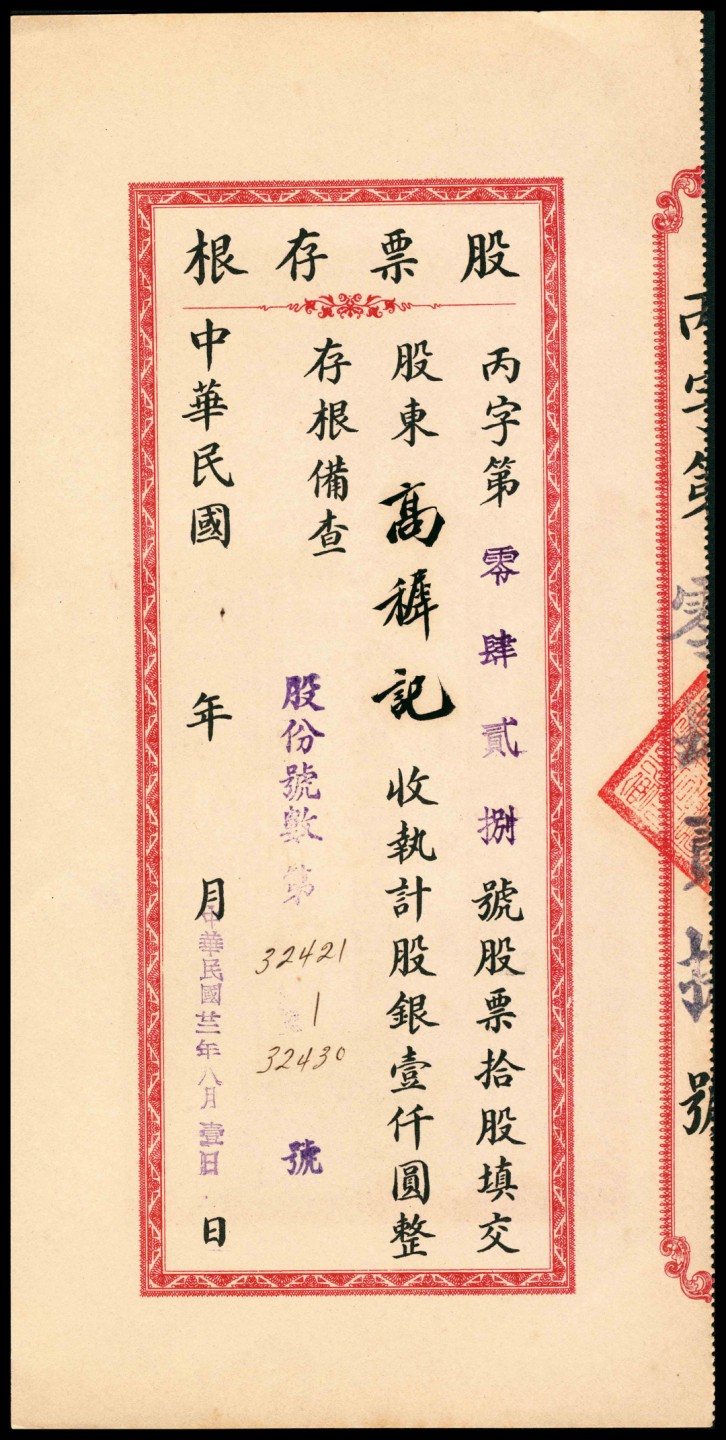 股票存根
丙字第零肆貳捌號股票拾股填交
股東高穉記收執計股銀壹仟圓整
存根備查
股份號數第32421
|
32430號
中華民國 年 月 日
中華民國廿三年八月壹日
丙字第零肆貳捌號